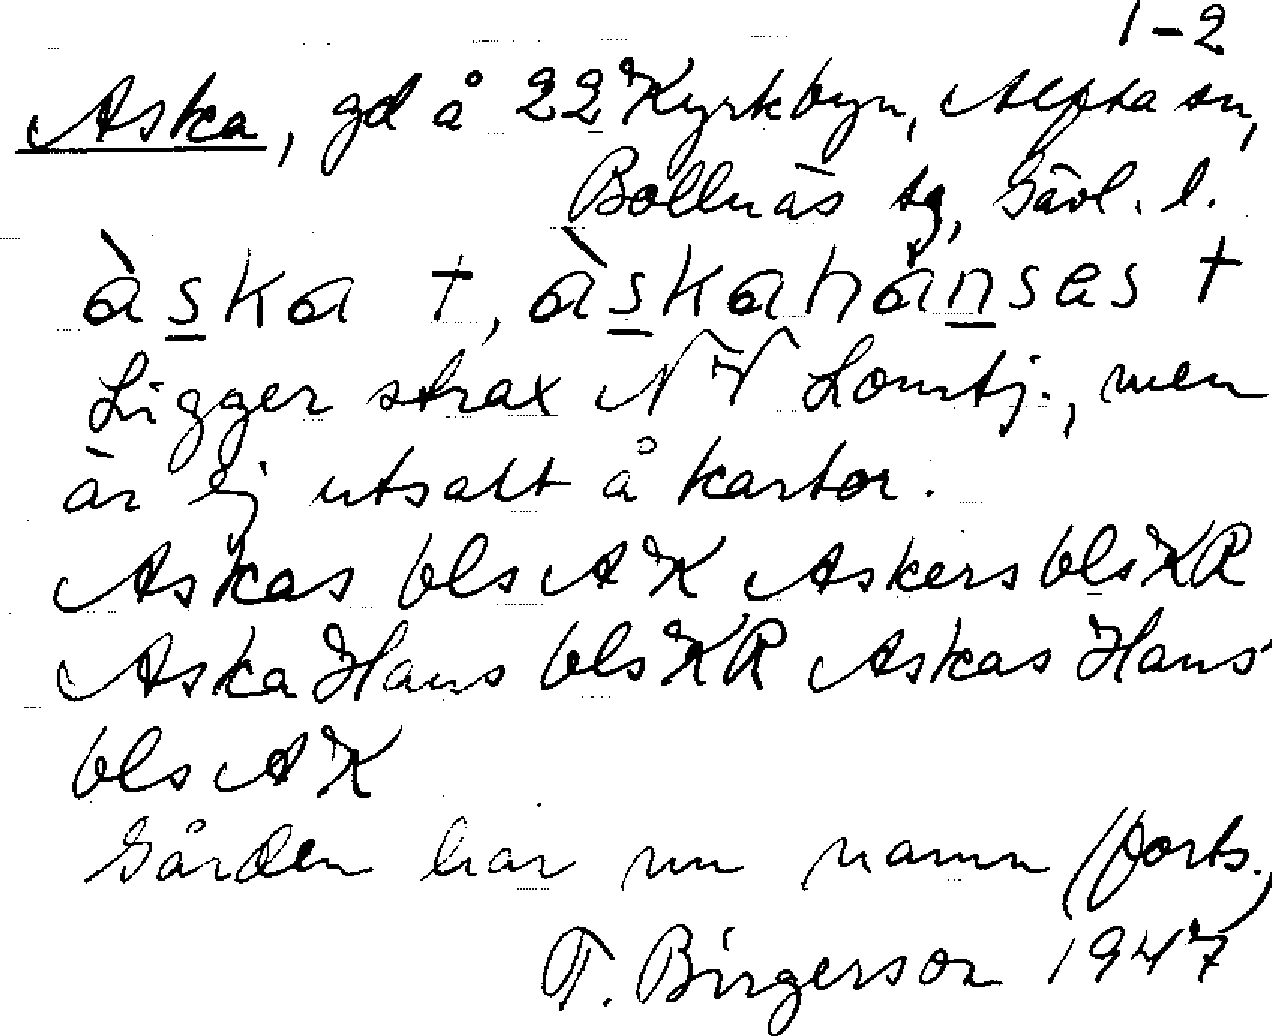 1-2
Aska, gd å 22 Kyrkbyn, Alfta sn,
Bollnäs tg, Gävl. l.
àska †, àskahànsas †
Ligger strax NV Lomtj., men
är ej utsatt å kartor.
Askas bls AK Askers bls KR
Aska Hans bls KR Askas Hans
bls AK
Gården har nu namn (forts.)
T. Birgerson 1947